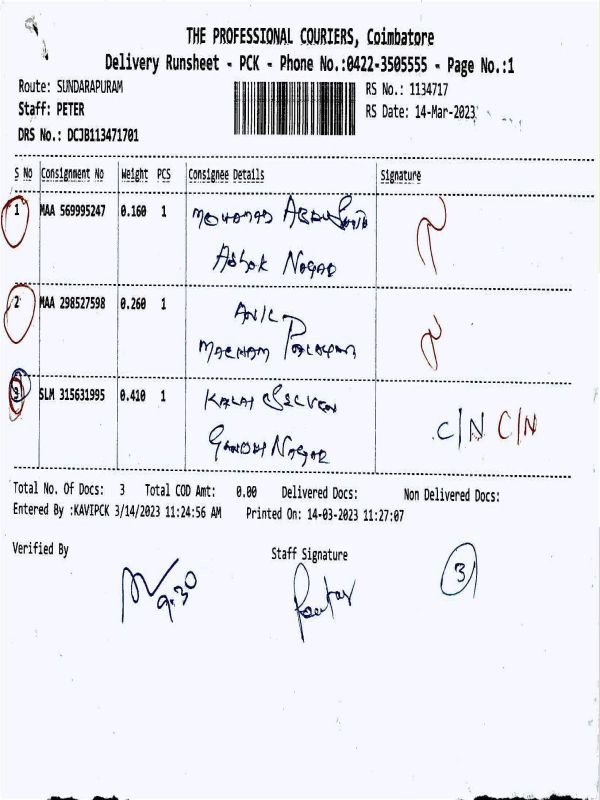 THE PROFESSIONAL COURIERS, Coimbatore
Delivery Runsheet - PCK - Phone No.:0422-3505555 - Page No.:1
Route: SUNDARAPURAM RS No.: 1134717
Staff: PETER RS Date: 14-Mar-2023
DRS No.: DCJB113471701
S No Consignment No Weight PCS Consignee Details Signature
1 MAA 569995247 0.160 1 MOHAMAD ABDUL
ASHOK NAGAR
2 MAA 298527598 0.260 1 ANIL
3 SLM 315631995 0.410 1 KALAI SELVEN C/N C/N
GANDHI NAGAR
Total No. Of Docs: 3 Total COD Amt: 0.00 Delivered Docs: Non Delivered Docs:
Entered By :KAVIPCK 3/14/2023 11:24:56 AM Printed On: 14-03-2023 11:27:07
Verified By Staff Signature
3
9.30